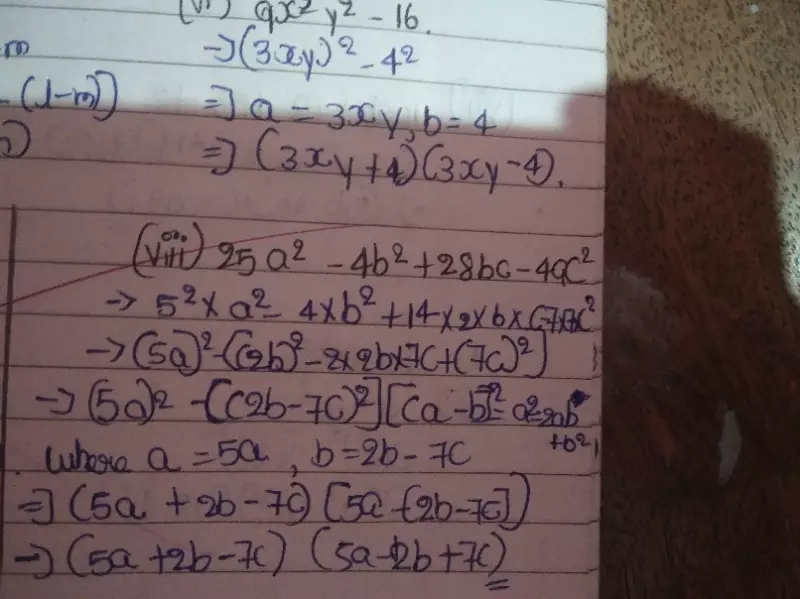 (vi) 9x² y² - 16.
m
→ (3xy)² - 4²
- (l-m))
⇒ a = 3xy, b = 4
⇒ (3xy+4)(3xy-4).
(viii) 25a² - 4b² + 28bc - 49c²
→ 5² × a² - 4×b² + 14×2×b×c-7×7×c²
→ (5a)² - [(2b)² - 2×2b×7c+(7c)²]
→ (5a)² - [(2b-7c)²] [(a-b)² = a²-2ab
+b²]
where a = 5a , b = 2b - 7c
⇒ (5a + 2b - 7c) [5a - (2b-7c)]
→ (5a + 2b - 7c) (5a - 2b + 7c)